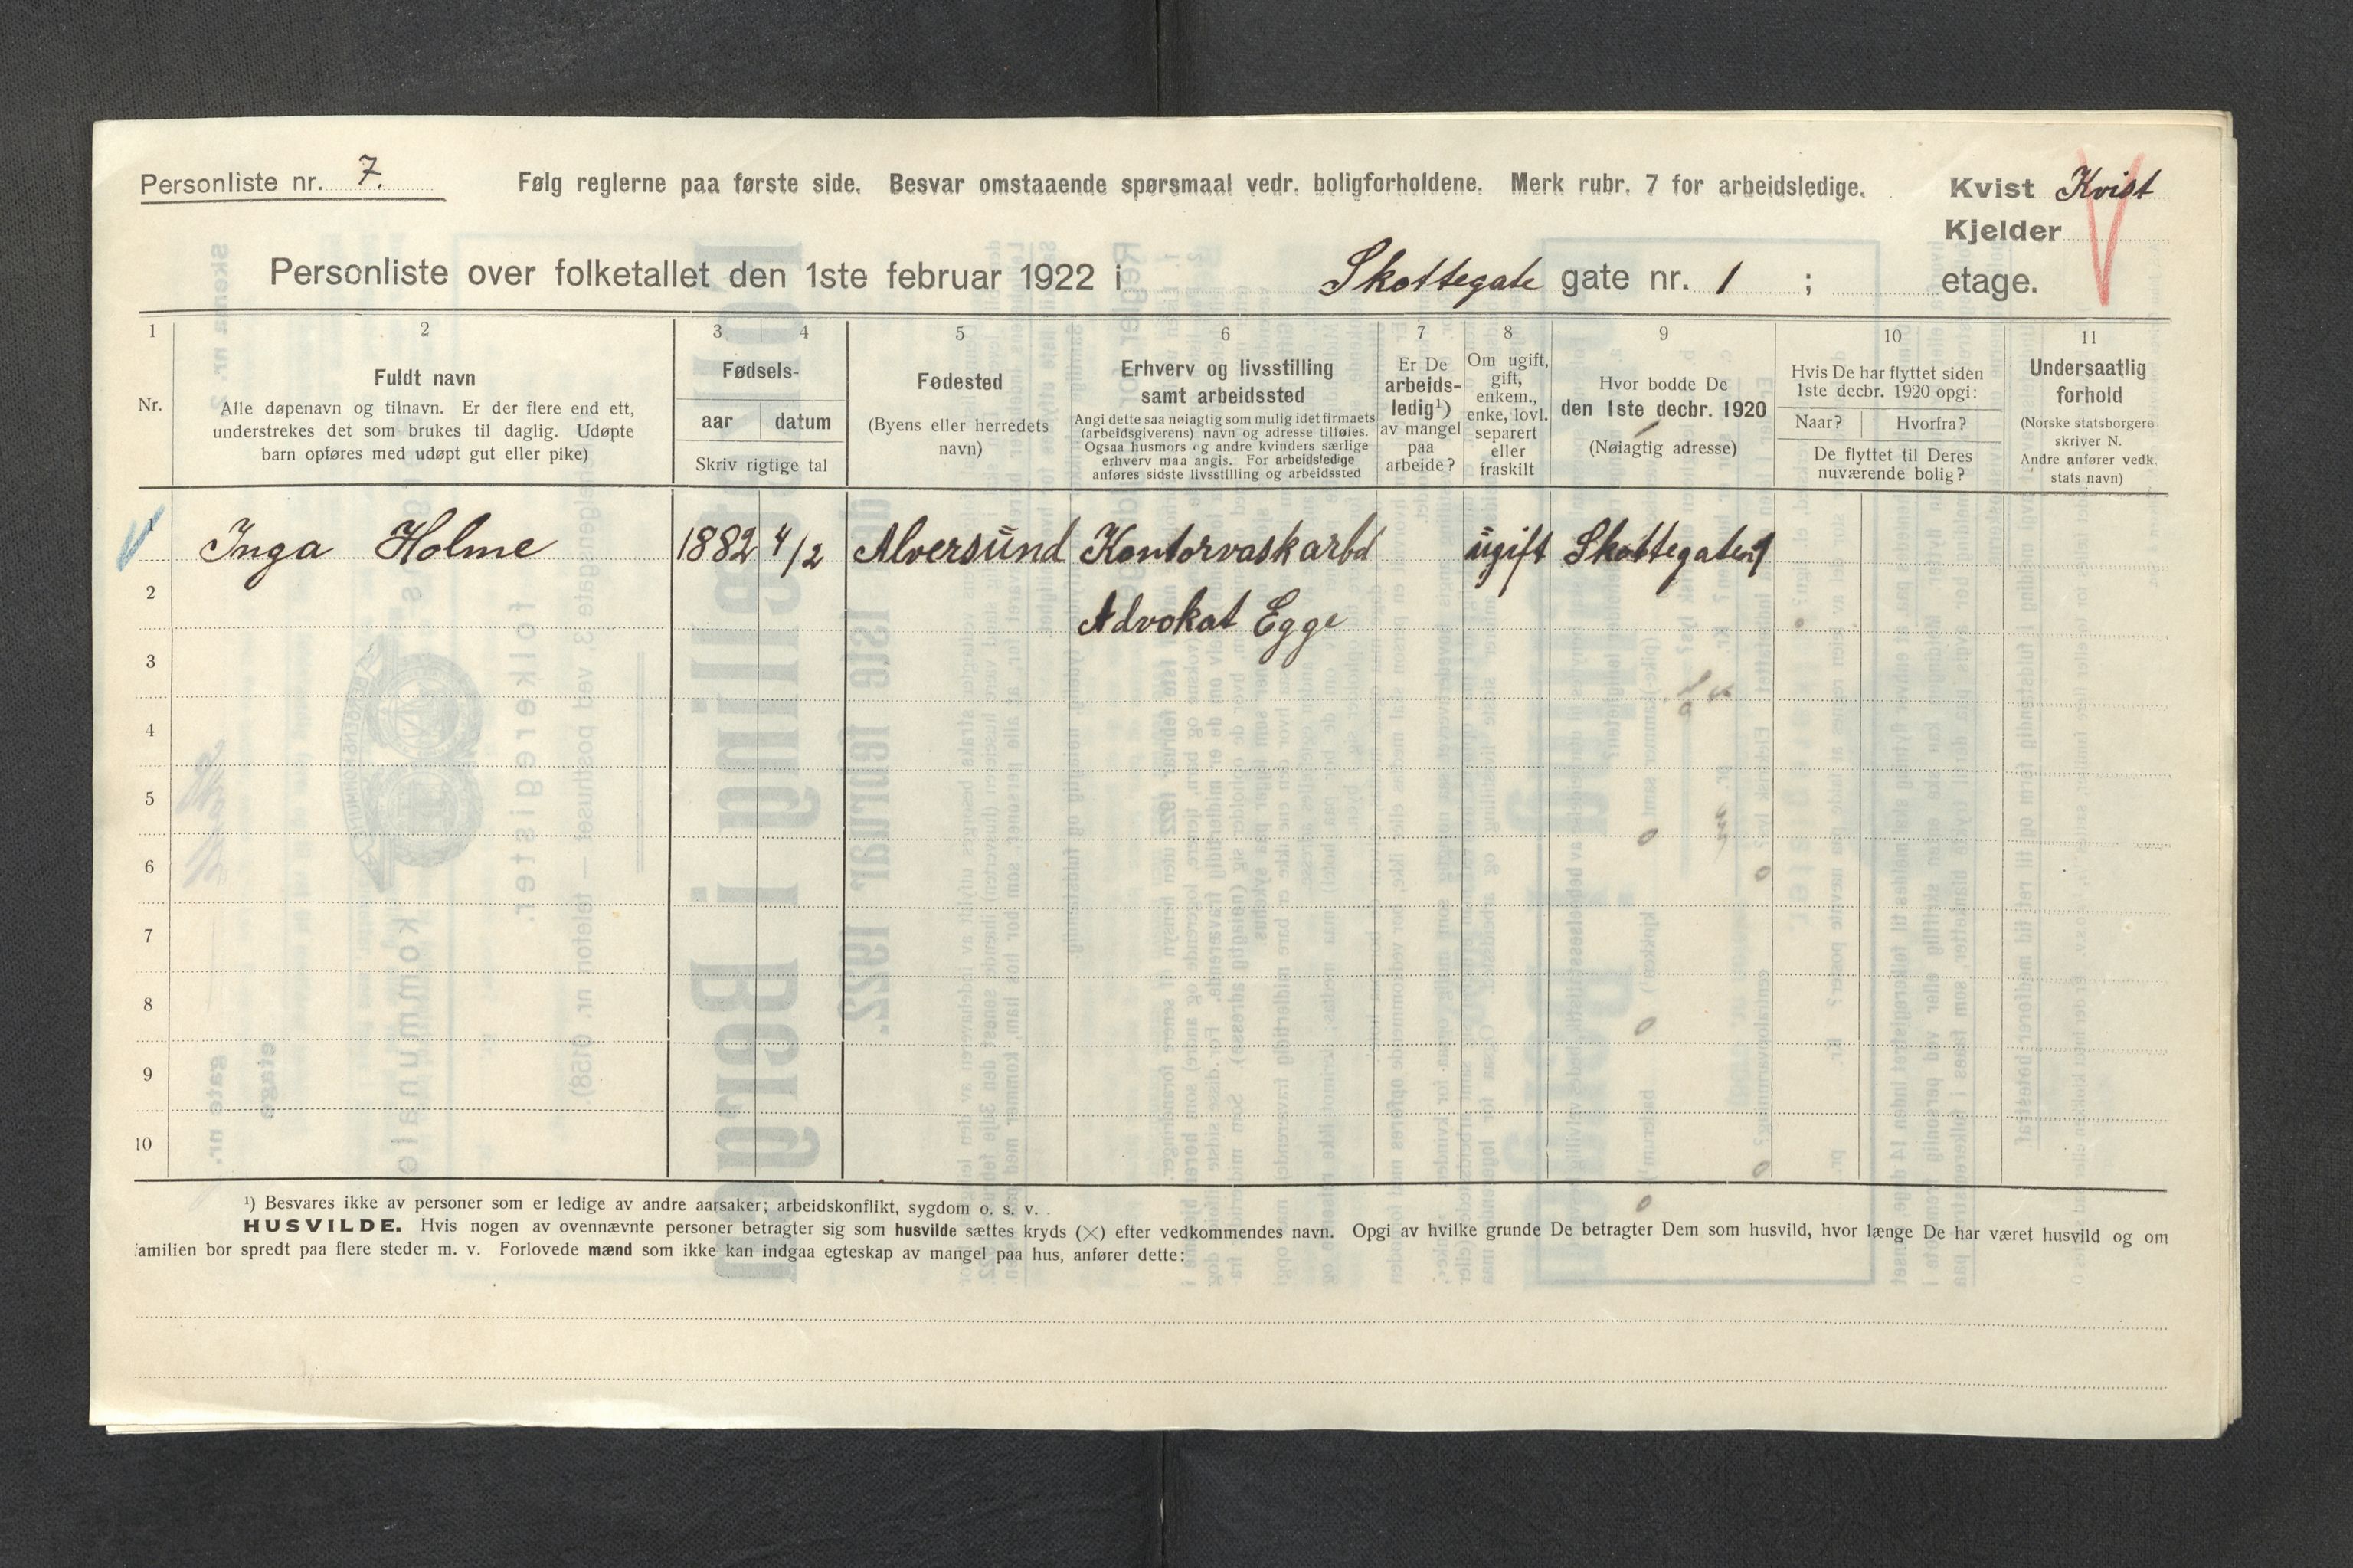 Personliste nr. 7.
Følg reglerne paa første side. Besvar omstaaende spørsmaal vedr. boligforholdene. Merk rubr. 7 for arbeidsledige.
Kvist Kvist
Kjelder
Personliste over folketallet den 1ste februar 1922 i Skottegate gate nr. 1 ; etage.
1 2 3 4 5 6 7 8 9 10 11
Nr.
Fuldt navn
Alle døpenavn og tilnavn. Er der flere end ett,
understrekes det som brukes til daglig. Udøpte
barn opføres med udøpt gut eller pike)
Fødsels-
aar datum
Skriv rigtige tal
Fodested
(Byens eller herredets
navn)
Erhverv og livsstilling
samt arbeidssted
Angi dette saa nøiagtig som mulig idet firmaets
(arbeidsgiverens) navn og adresse tilføies.
Ogsaa husmors og andre kvinders særlige
erhverv maa angis. For arbeidsledige
anføres sidste livsstilling og arbeidssted
Er De
arbeids-
ledig¹)
av mangel
paa
arbeide?
Om ugift,
gift,
enkem.,
enke, lovl.
separert
eller
fraskilt
Hvor bodde De
den 1ste decbr. 1920
(Nøiagtig adresse)
Hvis De har flyttet siden
1ste decbr. 1920 opgi:
Naar? Hvorfra?
De flyttet til Deres
nuværende bolig?
Undersaatlig
forhold
(Norske statsborgere
skriver N.
Andre anfører vedk.
stats navn)
1 Inga Holme 1882 4/2 Alversund Kontorvask arbd ugift Skottegaten 1
2 Advokat Egge
3
4
5
6
7
8
9
10
¹) Besvares ikke av personer som er ledige av andre aarsaker; arbeidskonflikt, sygdom o. s. v.
HUSVILDE. Hvis nogen av ovennævnte personer betragter sig som husvilde sættes kryds (×) efter vedkommendes navn. Opgi av hvilke grunde De betragter Dem som husvild, hvor længe De har været husvild og om
familien bor spredt paa flere steder m. v. Forlovede mænd som ikke kan indgaa egteskap av mangel paa hus, anfører dette: